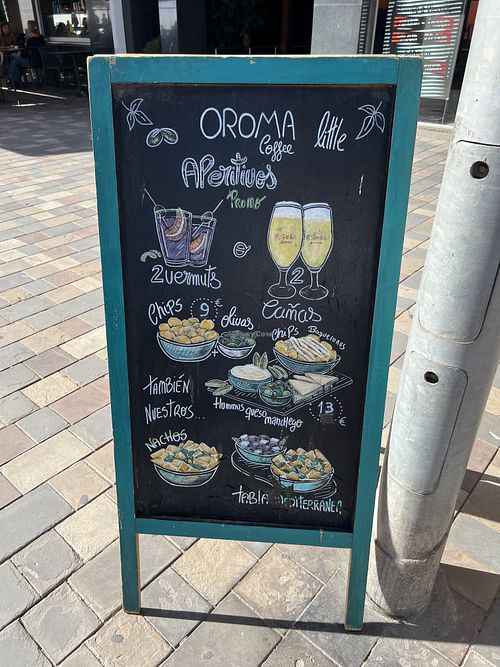 OROMA little
Coffee
APeritivos
PROMO
2 vermuts
2 Cañas
Chips 9 € olivas
+
Chips Boquerones
Hummus queso manchego
13 €
También
Nuestros...
NACHOS
TABLA MEDITERRANEA